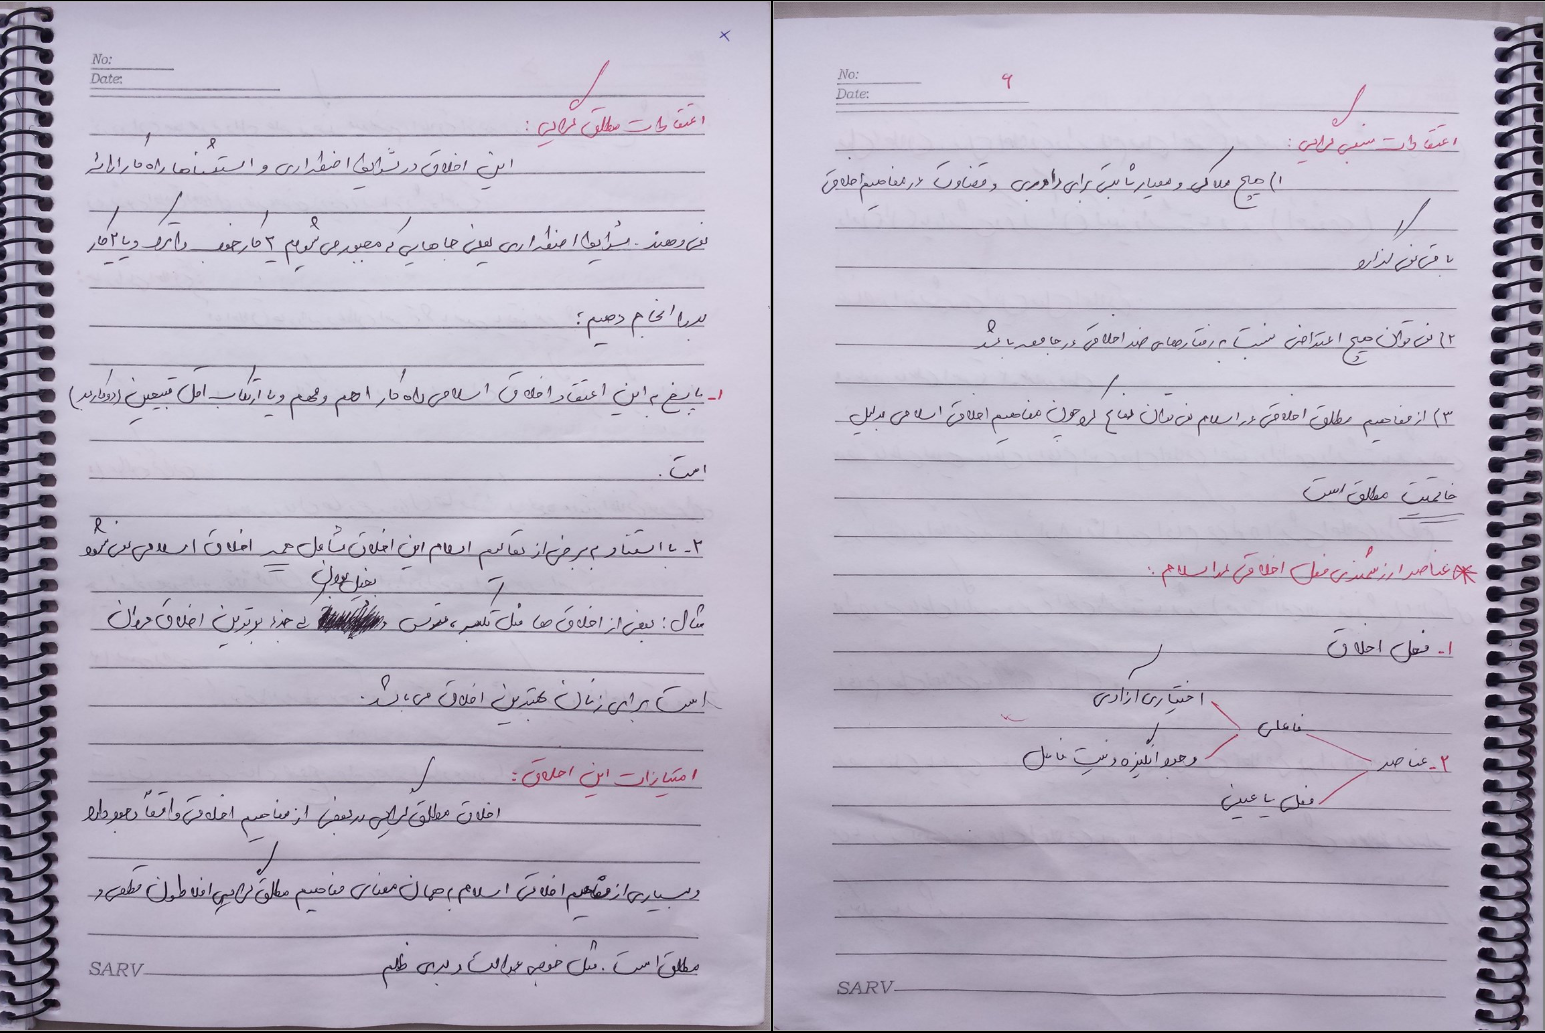 No:
Date:
اعتقادات مطلق گرایی :
این اخلاق در شرایط اضطراری و استثناها راه کار ارائه
نمی دهند. شرایط اضطراری یعنی جاهایی که مجبور می شویم ۲ کار خوب را ترک و یا ۲ کار
بد را انجام دهیم :
۱- پاسخ به این اعتقاد اخلاق اسلامی راه کار اهم و مهم و یا ارتکاب اقل قبیحین (دو کار بد)
است .
۲- با استناد به برخی از تعالیم اسلام این اخلاق شامل همه اخلاق اسلامی نمی شود
بخیل بودن
مثال : بعضی از اخلاق ها مثل تکبر ، ترس و که جزء بدترین اخلاق مردان
است برای زنان بهترین اخلاق می باشد.
امتیازات این اخلاق :
اخلاق مطلق گرایی در بعضی از مفاهیم اخلاقی واقعاً وجود دارد
و بسیاری از مفاهیم اخلاقی اسلام به همان معنای مفاهیم مطلق گرایی افلاطون قطعی و
مطلق است . مثل خوبی عدالت و بدی ظلم
SARV
No:
Date:
۶
اعتقادات نسبی گرایی :
۱) هیچ ملاکی و معیار ثابتی برای داوری و قضاوت در مفاهیم اخلاقی
باقی نمی گذارد
۲) نمی توان هیچ اعتراضی نسبت به رفتارهای ضد اخلاقی در جامعه باشد
۳) از مفاهیم مطلق اخلاقی در اسلام نمی توان دفاع کرد چون مفاهیم اخلاق اسلامی بدلیل
خاتمیت مطلق است
* عناصر ارزشمندی فعل اخلاقی در اسلام :
۱- فعل اخلاق
اختیاری آزادی
فاعلی
وجود انگیزه و نیت فاعل
۲- عناصر
فعلی یا عینی
SARV